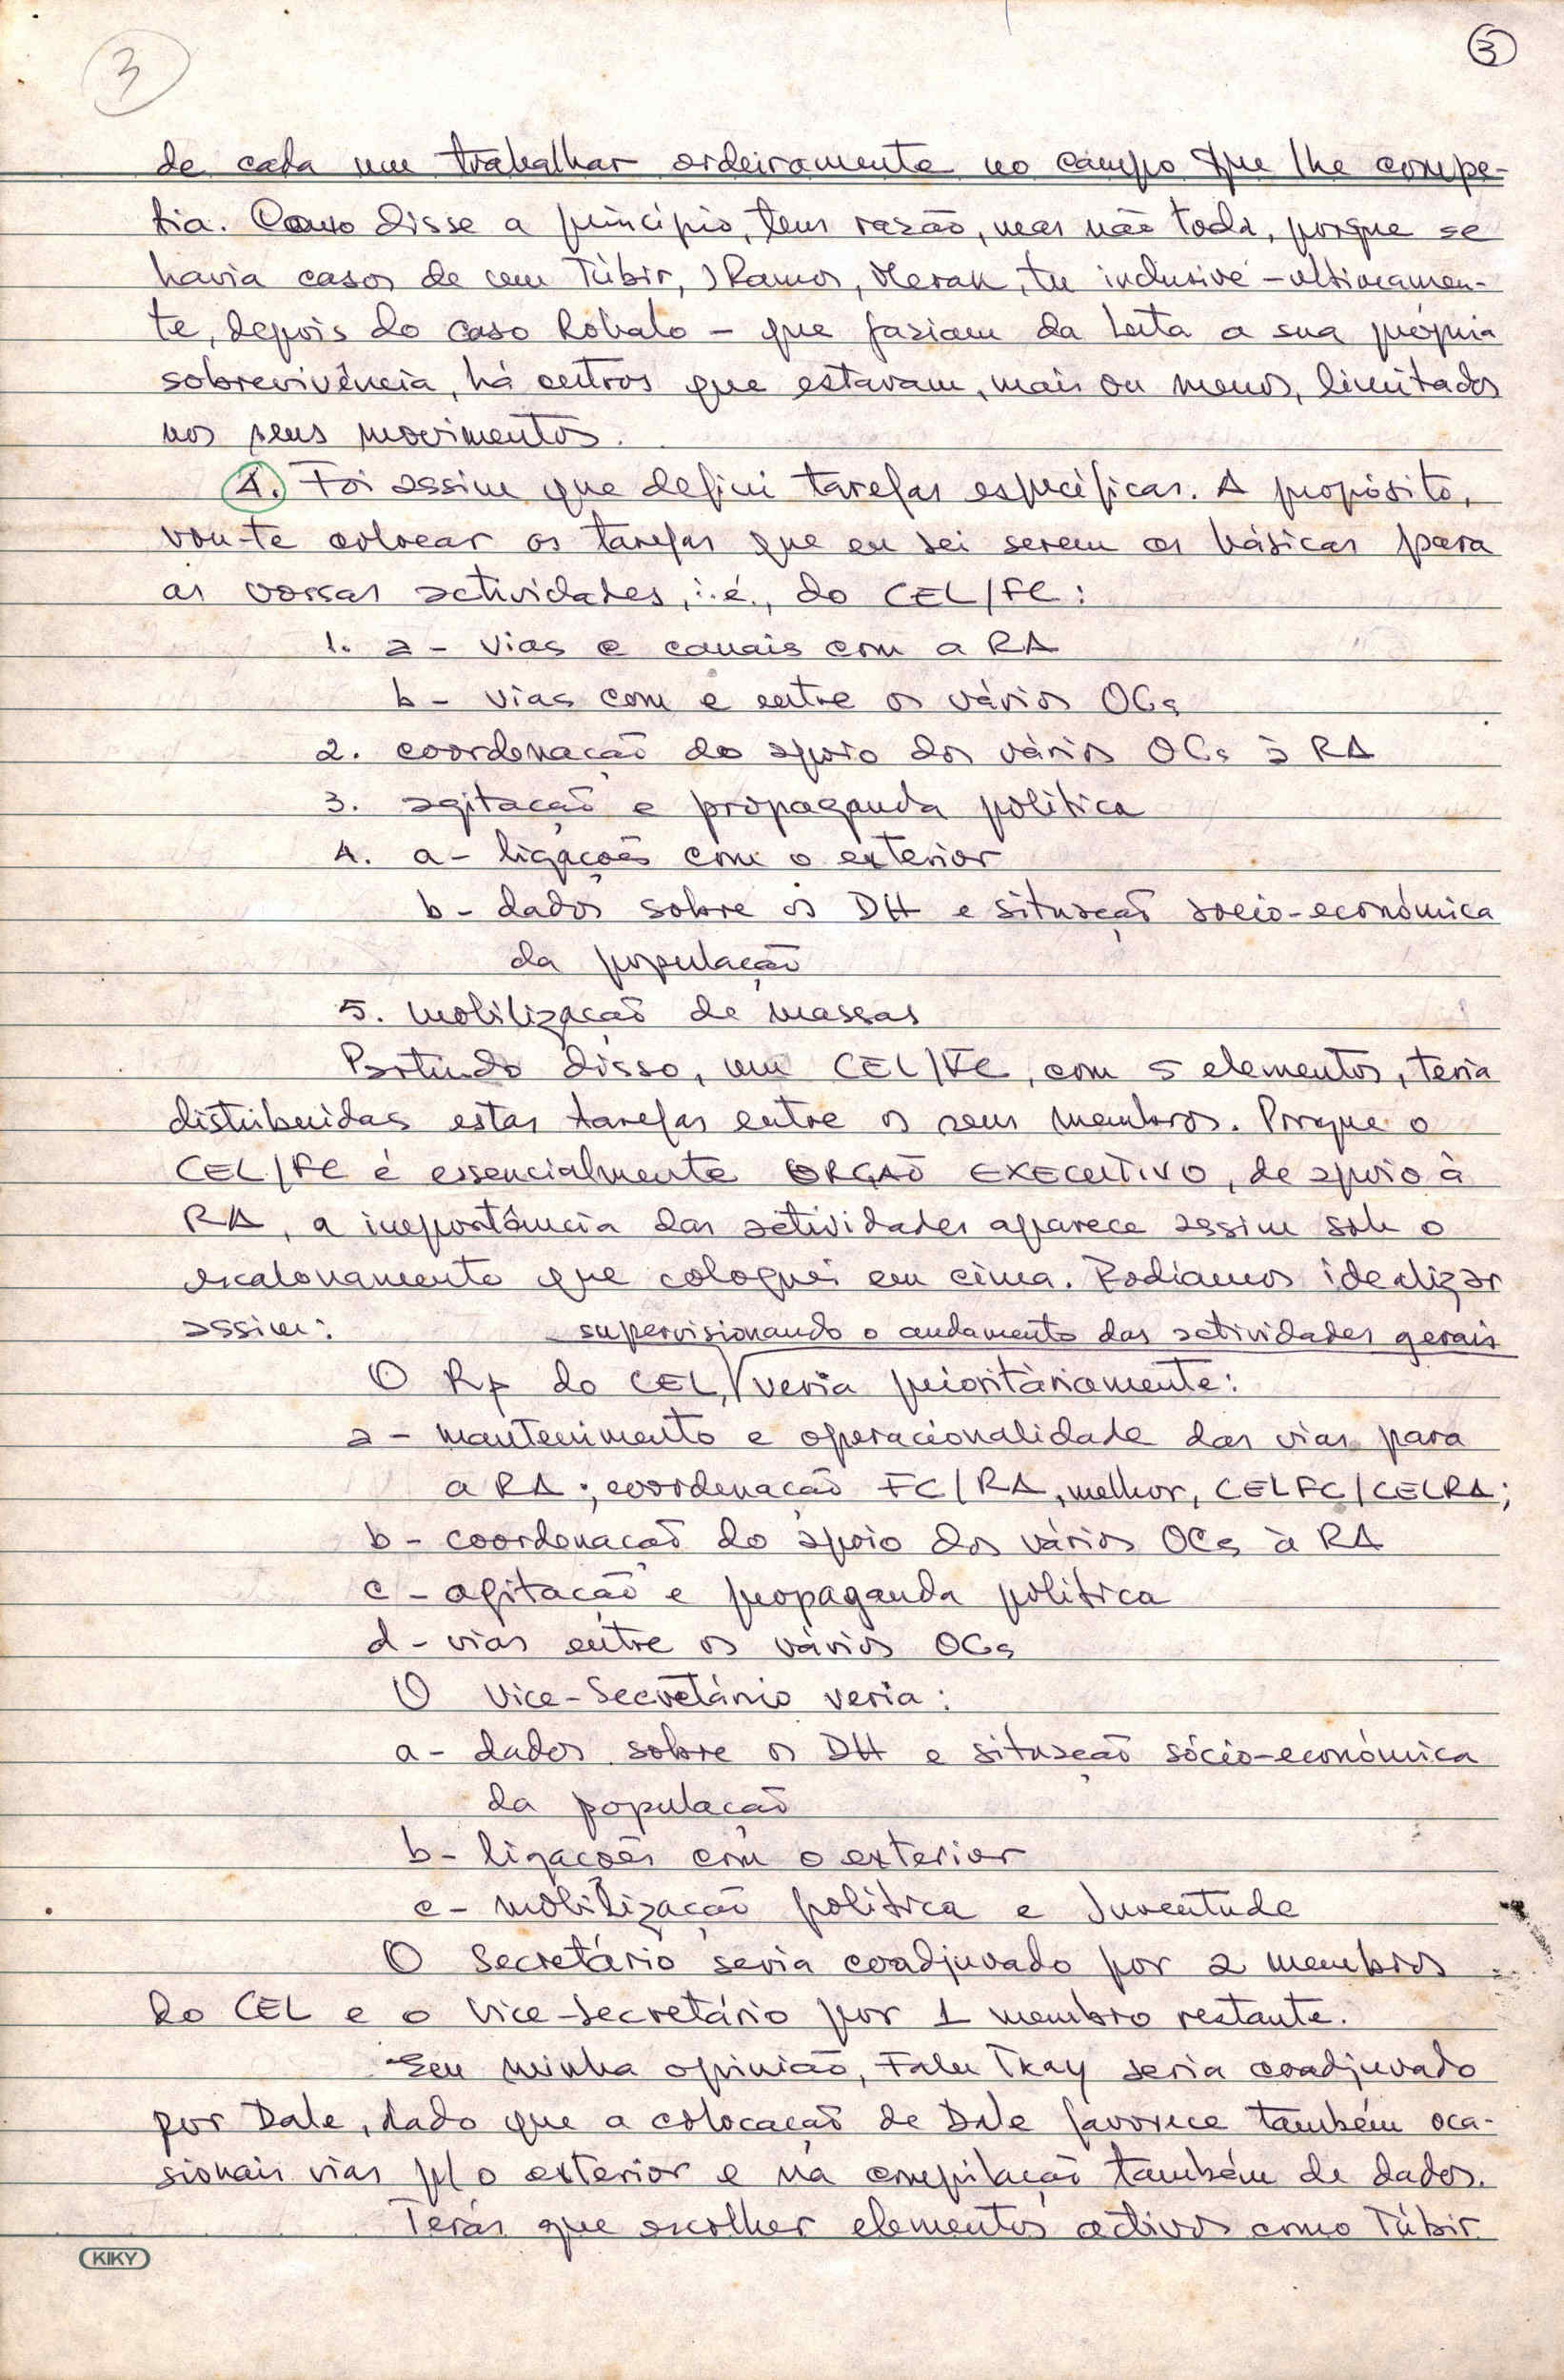 3
3
de cada um trabalhar ordeiramente no campo que lhe compe-
tia. Como disse a princípio, tens razão, mas não toda, porque se
havia casos de um Túbir, JRamos, Merak, tu inclusivé - ultimamen-
te, depois do caso Robalo - que faziam da Luta a sua própria
sobrevivência, há outros que estavam, mais ou menos, limitados
nos seus movimentos.
4. Foi assim que defini tarefas específicas. A propósito,
vou-te colocar as tarefas que eu sei serem as básicas para
as vossas actividades, i.é., do CEL/FC:
1. a - vias e canais com a RA
b - vias com e entre os vários OCs
2. coordenação do apoio dos vários OCs à RA
3. agitação e propaganda política
4. a - ligações com o exterior
b - dados sobre os DH e situação socio-económica
da população
5. mobilização de massas
Partindo disso, um CEL/FC, com 5 elementos, teria
distribuidas estas tarefas entre os seus membros. Porque o
CEL/FC é essencialmente ORGÃO EXECUTIVO, de apoio à
RA, a importância das actividades aparece assim sob o
escalonamento que coloquei em cima. Podiamos idealizar
assim: supervisionando o andamento das actividades gerais
O Rp do CEL, veria prioritàriamente:
a - mantenimento e operacionalidade das vias para
a RA; coordenação FC/RA, melhor, CELFC/CELRA;
b - coordenação do apoio dos vários OCs à RA
c - agitação e propaganda política
d - vias entre os vários OCs
O Vice-Secretário veria:
a - dados sobre os DH e situação sócio-económica
da população
b - ligações com o exterior
c - mobilização política e Juventude
O Secretário seria coadjuvado por 2 membros
do CEL e o Vice-Secretário por 1 membro restante.
Em minha opinião, Falu Tkay seria coadjuvado
por Dale, dado que a colocação de Dale favorece também oca-
sionais vias p/ o exterior e na compilação também de dados.
Terás que escolher elementos activos como Túbir
KIKY